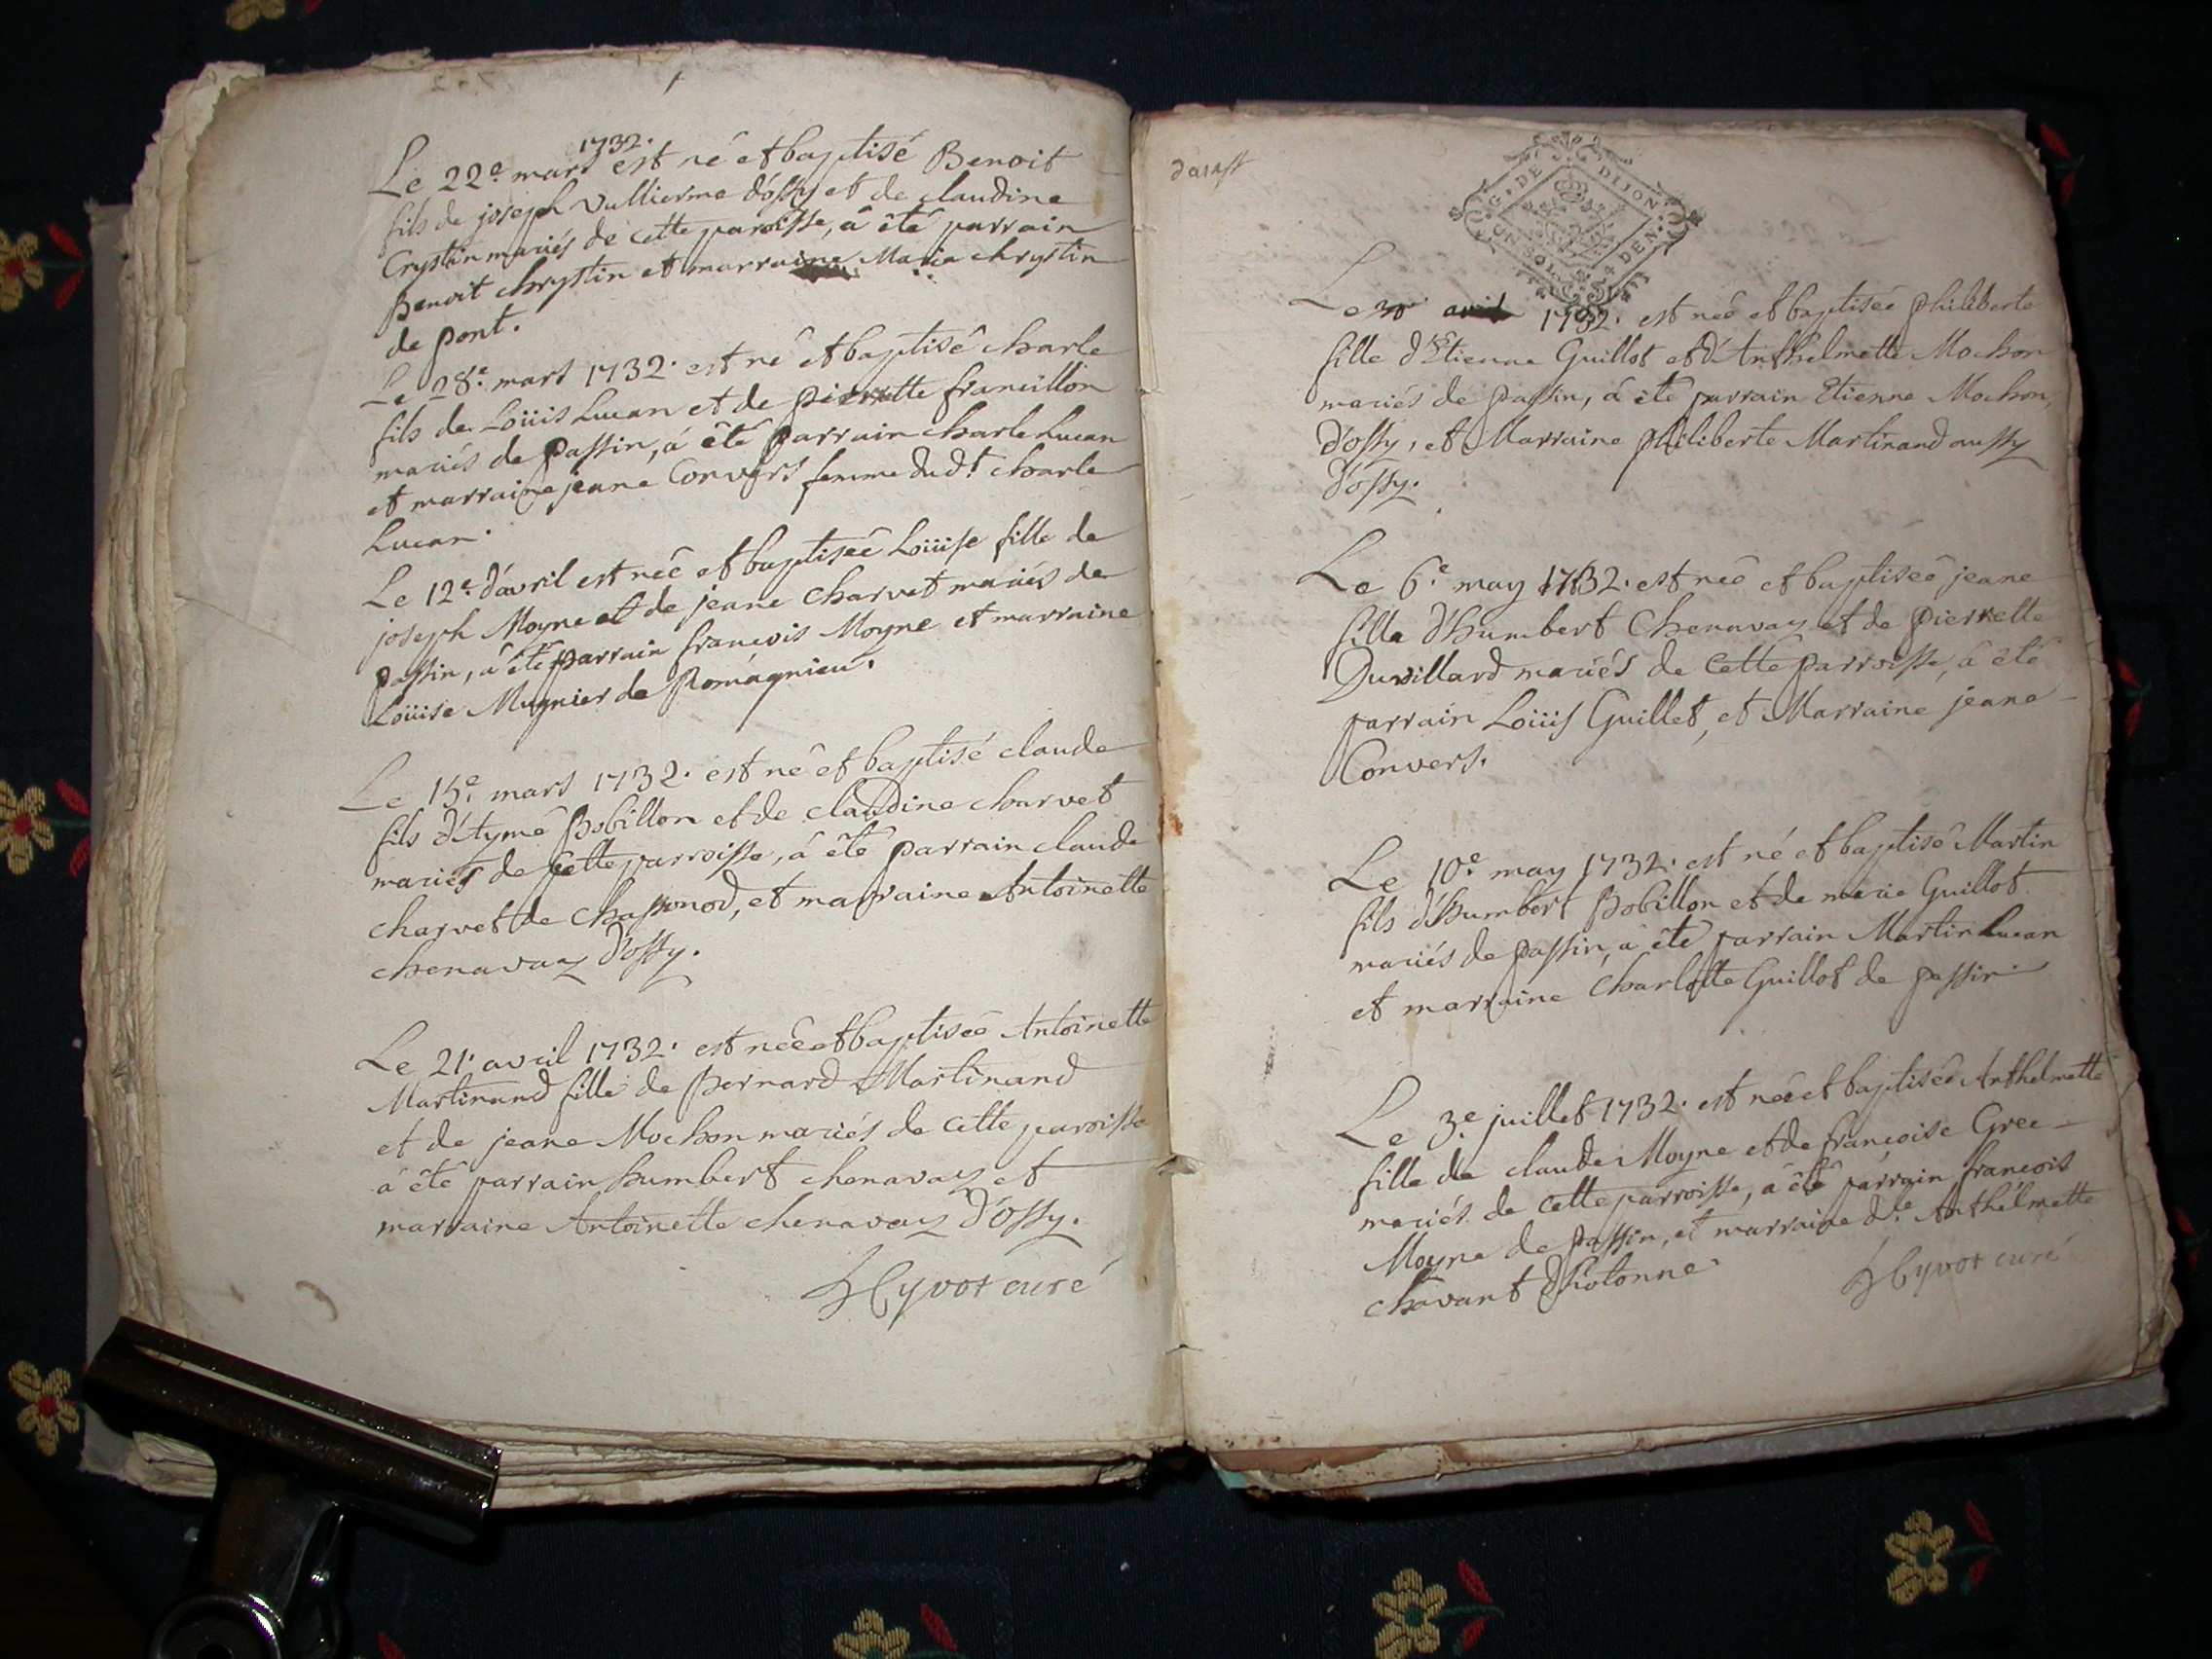 1732.
Le 22e mars est né et baptisé Benoit
fils de joseph Vullierme d'ossy et de claudine
Crystin mariés de cette paroisse, à été parrain
Benoit chrystin et marraine Maria chrystin
de pont.
Le 28e. mars 1732. est né et baptisé charle
fils de Loüis Lucan et de pierrette francillon
mariés de passin, á été parrain charle Lucan
et marraine jeane Convers femme dudt. charle
Lucan.
Le 12e. d'avril est née et baptisée Loüise fille de
joseph Moyne et de jeane charvet mariés de
passin, à été parrain françois Moyne et marraine
Loüise Mugnier de Romagnieu.
Le 15e. mars 1732. est né et baptisé claude
fils d'Aymé Bobillon et de claudine charvet
mariés de cette parroisse, á été parrain claude
charvet de chassonod, et marraine Antoinette
chenavaz d'ossy.
Le 21. avril 1732. est née et baptisée Antoinette
Martinand fille de Bernard Martinand
et de jeane Mochon mariés de cette paroisse
à été parrain humbert chenavaz et
marraine Antoinette chenavaz d'ossy.
Hyvot curé
G. DE DIJON
UN SOL. 4 DEN.
Le 30 avril 1732. est née et baptisée philiberte
fille d'Etienne Guillot et d'Anthelmette Mochon
mariés de passin, á été parrain Etienne Mochon,
d'ossy, et Marraine philiberte Martinand aussy
d'ossy.
Le 6.e may 1732. est née et baptisée jeane
fille d'humbert Chenavaz et de pierrette
Duvillard mariés de cette parroisse, á été
parrain Loüis Guillet, et Marraine jeane
Convers.
Le 10.e may 1732. est né et baptisé Martin
fils d'humbert Bobillon et de marie Guillot
mariés de passin, á été parrain Martin Lucan
et marraine charlotte Guillot de passin.
Le 3.e juillet 1732. est née et baptisée Anthelmette
fille de claude Moyne et de françoise Gree
mariés de cette parroisse, á été parrain françois
Moyne de passin, et marraine dle. Anthélmette
chavant d'hotonne
Hyvot curé